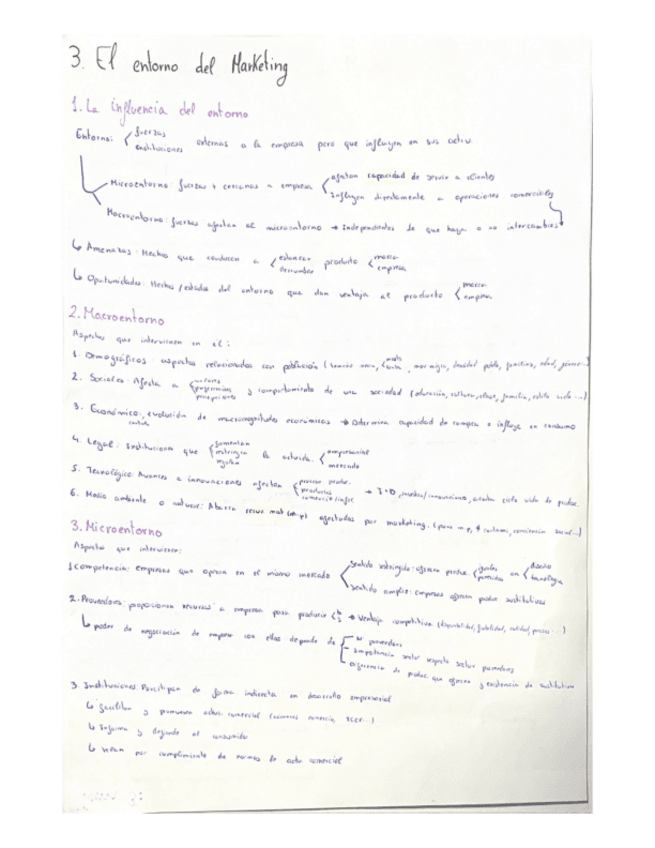 3. El entorno del Marketing
1. La influencia del entorno
Entorno: fuerzas instituciones externas a la empresa pero que influyen en sus activ.
Microentorno: fuerzas + cercanas a empresa afectan capacidad de servir a clientes influyen directamente a operaciones comerciales
Macroentorno: fuerzas afectan al microentorno → Independientes de que haya o no intercambios
↳ Amenazas: Hechos que conducen a producto marca empresa
↳ Oportunidades: Hechos / estados del entorno que dan ventaja al producto marca empresa
2. Macroentorno
Aspectos que intervienen en el:
1. Demográficos: aspectos relacionados con población
2. Sociales: Afecta a valores preferencias percepciones y comportamiento de una sociedad (educación, cultura, clase, familia, estilo vida ...)
3. Económico: evolución de macromagnitudes económicas → Determina capacidad de compra e influye en consumo
4. Legal: Instituciones que fomentan restringen regulan la activida. empresarial mercado
5. Tecnológico: Avances e innovaciones afectan proceso produc. productos → I+D, ciclo vida de produc.
6. Medio ambiente o natural: Abarca recur. mat. (mp) afectados por marketing.
3. Microentorno
Aspectos que intervienen:
1 Competencia: empresas que operan en el mismo mercado sentido restringido: ofrecen produc. iguales parecidos en diseño tecnología
sentido amplio: empresas ofrecen produc. sustitutivos
2. Proveedores: proporcionan recursos a empresa para producir → Ventaja competitiva (disponibilidad, fiabilidad, calidad, precios ...)
↳ poder de negociación de empresa con ellos depende de nº proveedores
importancia sector respecto sector proveedores
diferencia de produc. que ofrecen y existencia de sustitutivos
3. Instituciones: Participan de forma indirecta en desarrollo empresarial
↳ facilitan y promueven activ. comercial
↳ Informa y defiende al consumidor
↳ velan por cumplimiento de normas de activ. comercial